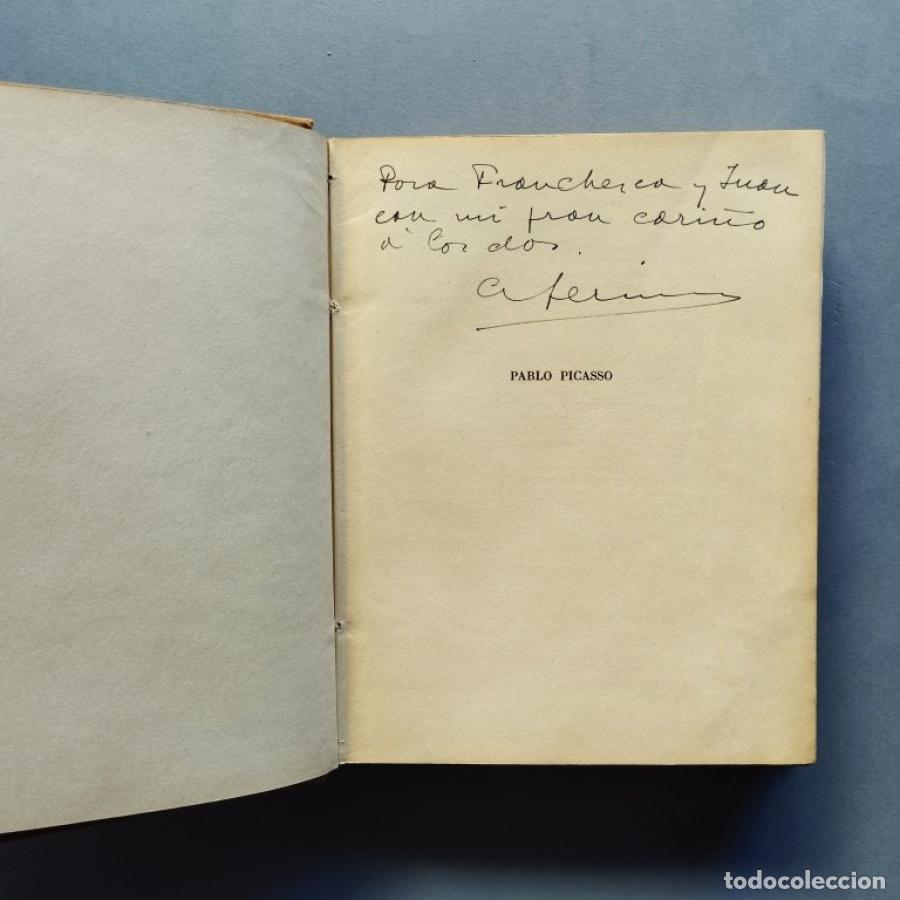 Para Franchesca y Juan
con mi gran cariño
a los dos.
PABLO PICASSO
todocoleccion